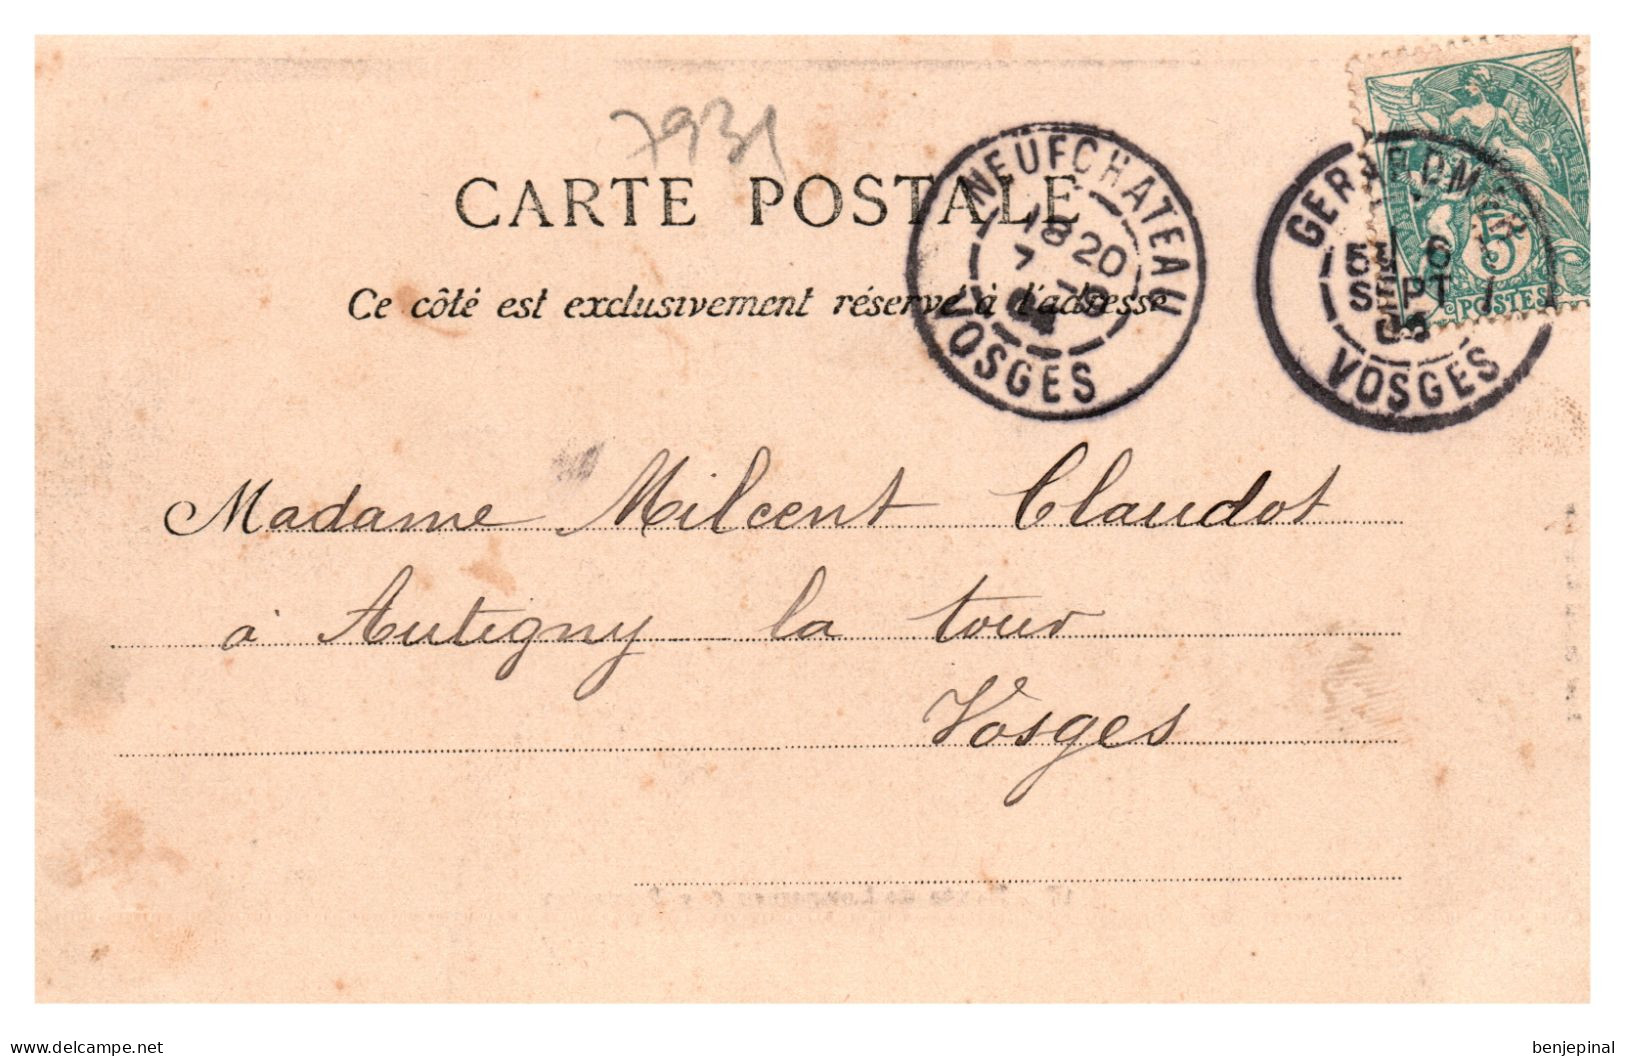 7931
CARTE POSTALE
Ce côté est exclusivement réservé à l'adresse
NEUFCHATEAU
18 20
7
VOSGES
GERARDMER
6
SEPT
VOSGES
5
POSTES
Madame Milcent Claudot
à Autigny la tour
Vosges
delcampe.net
benjepinal